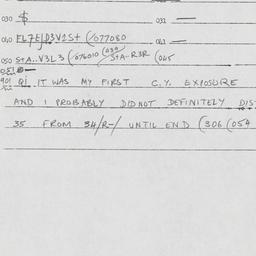 030 $ 031 —
040 FL7E/D3V2S+ (/077080 041 —
050 S+A..V3L3 (/076010 (A80 S+A..R3R (045
051 —
901 Q! IT WAS MY FIRST C.Y. EXPOSURE
AND I PROBABLY DID NOT DEFINITELY DIS
35 FROM 34/R-/ UNTIL END (306 (054